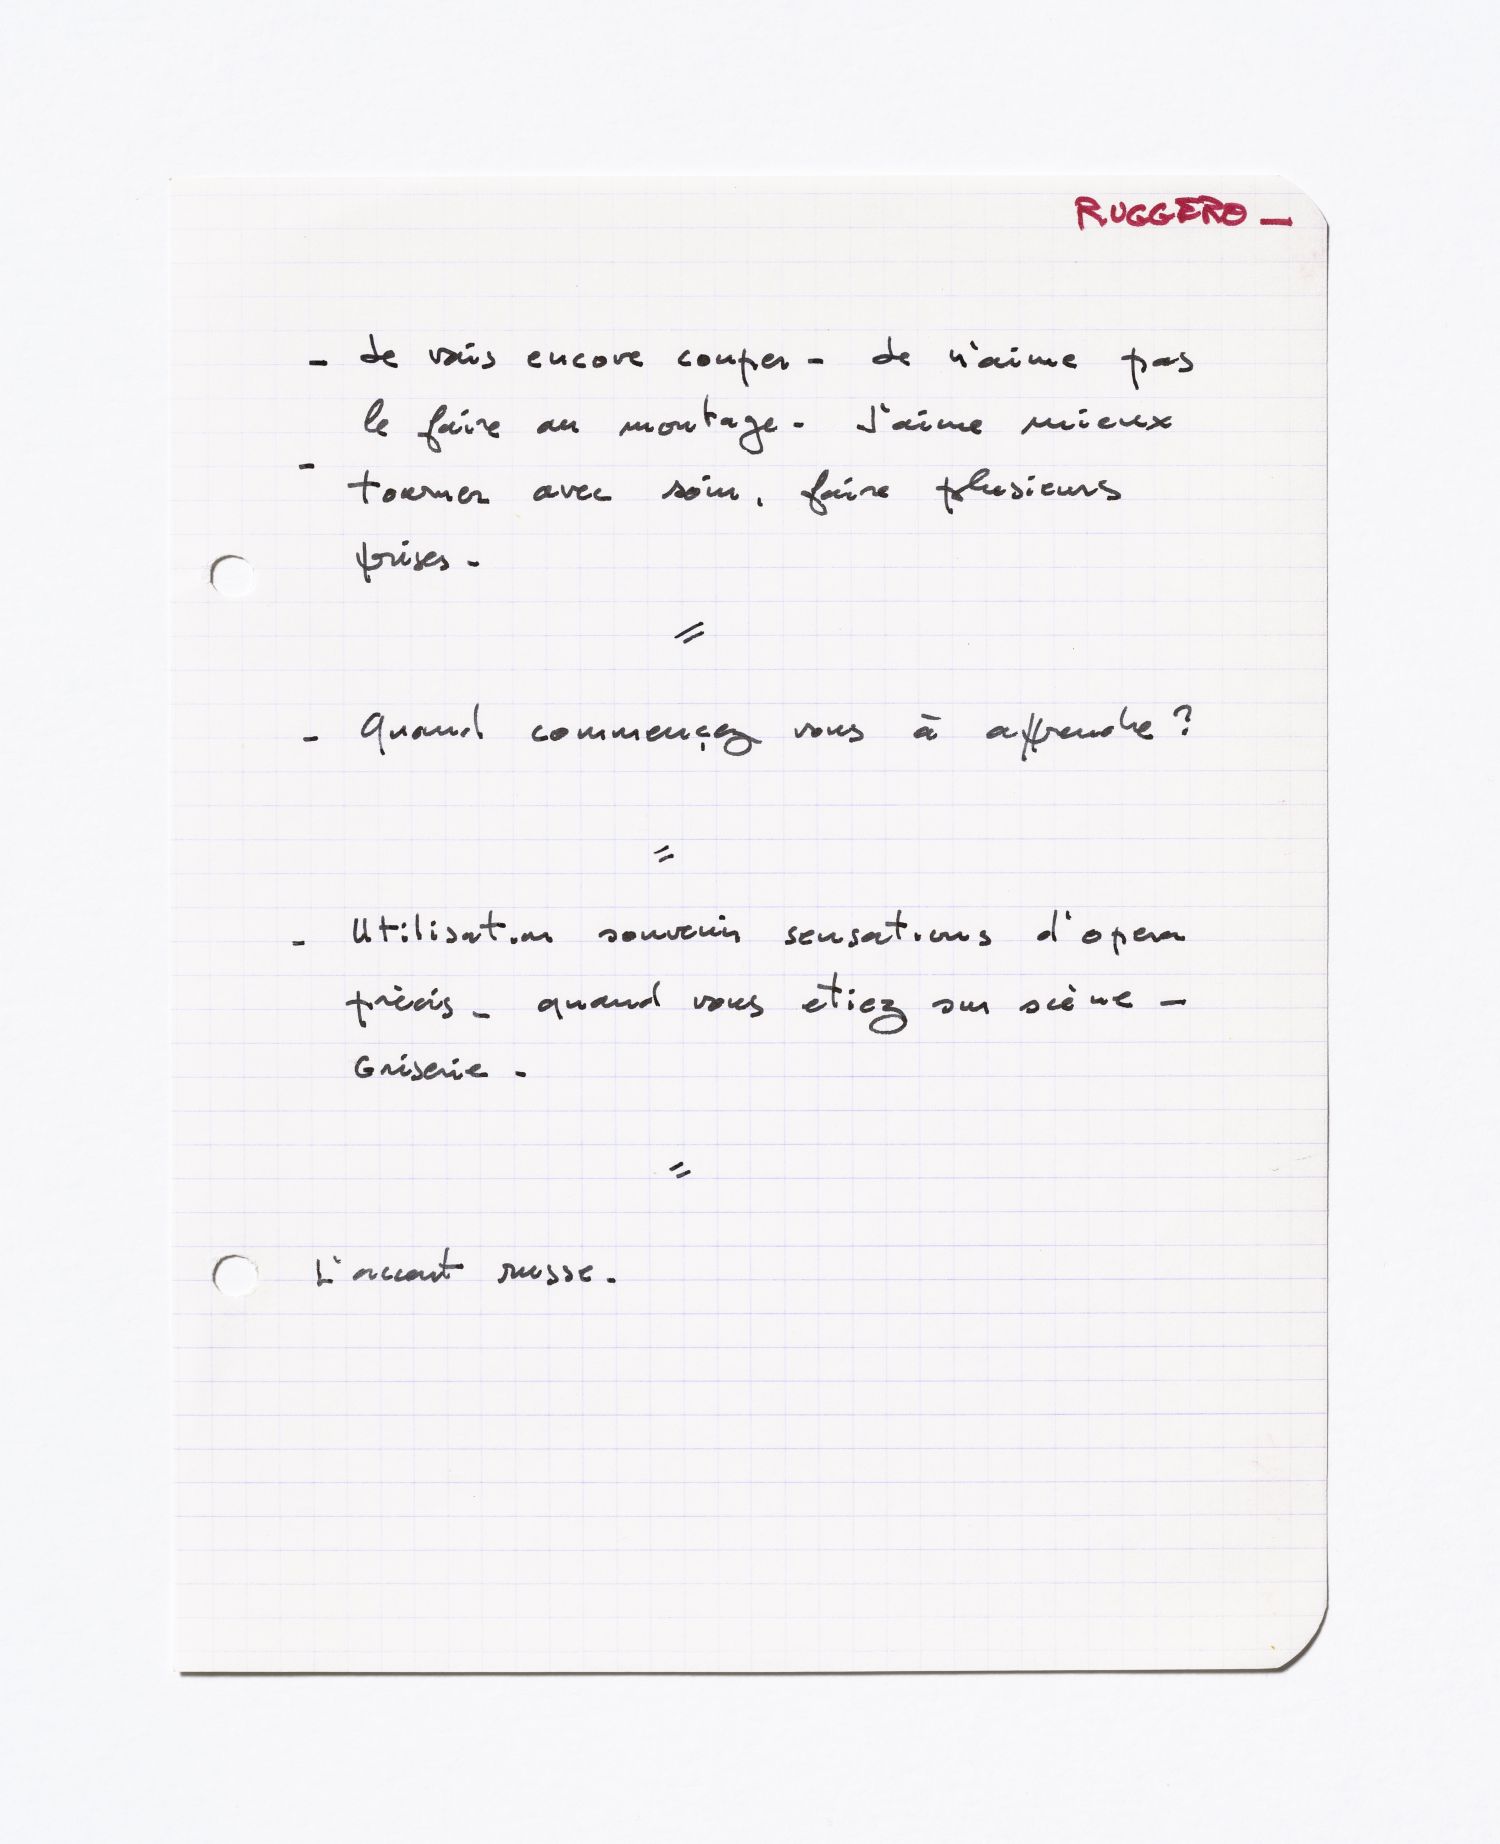 RUGGERO _
- Je vais encore couper - Je n'aime pas
le faire au montage - J'aime mieux
- tourner avec soin, faire plusieurs
prises -
=
- Quand commencez vous à apprendre ?
=
- Utilisation souvenir sensations d'opera
précis _ quand vous etiez sur scène -
Griserie -
=
L'accent russe -